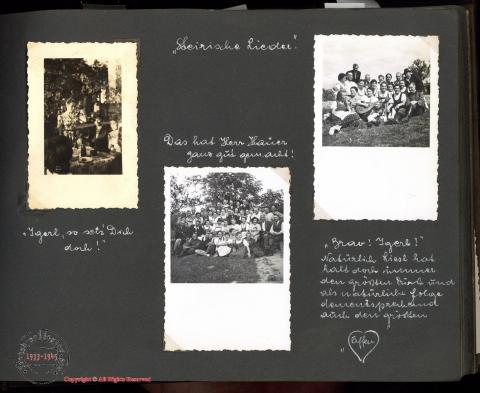 „Steirische Lieder".
Das hat Herr Hauer
ganz gut gemacht!
„Igerl, so setz' Dich
doch!"
„Brav! Igerl!"
Natürlich Liesl hat
halt doch immer
den größten Durst und
als natürliche Folge
dementsprechend
auch den größten
„Affen"
1933-1945
Copyright © All Rights Reserved